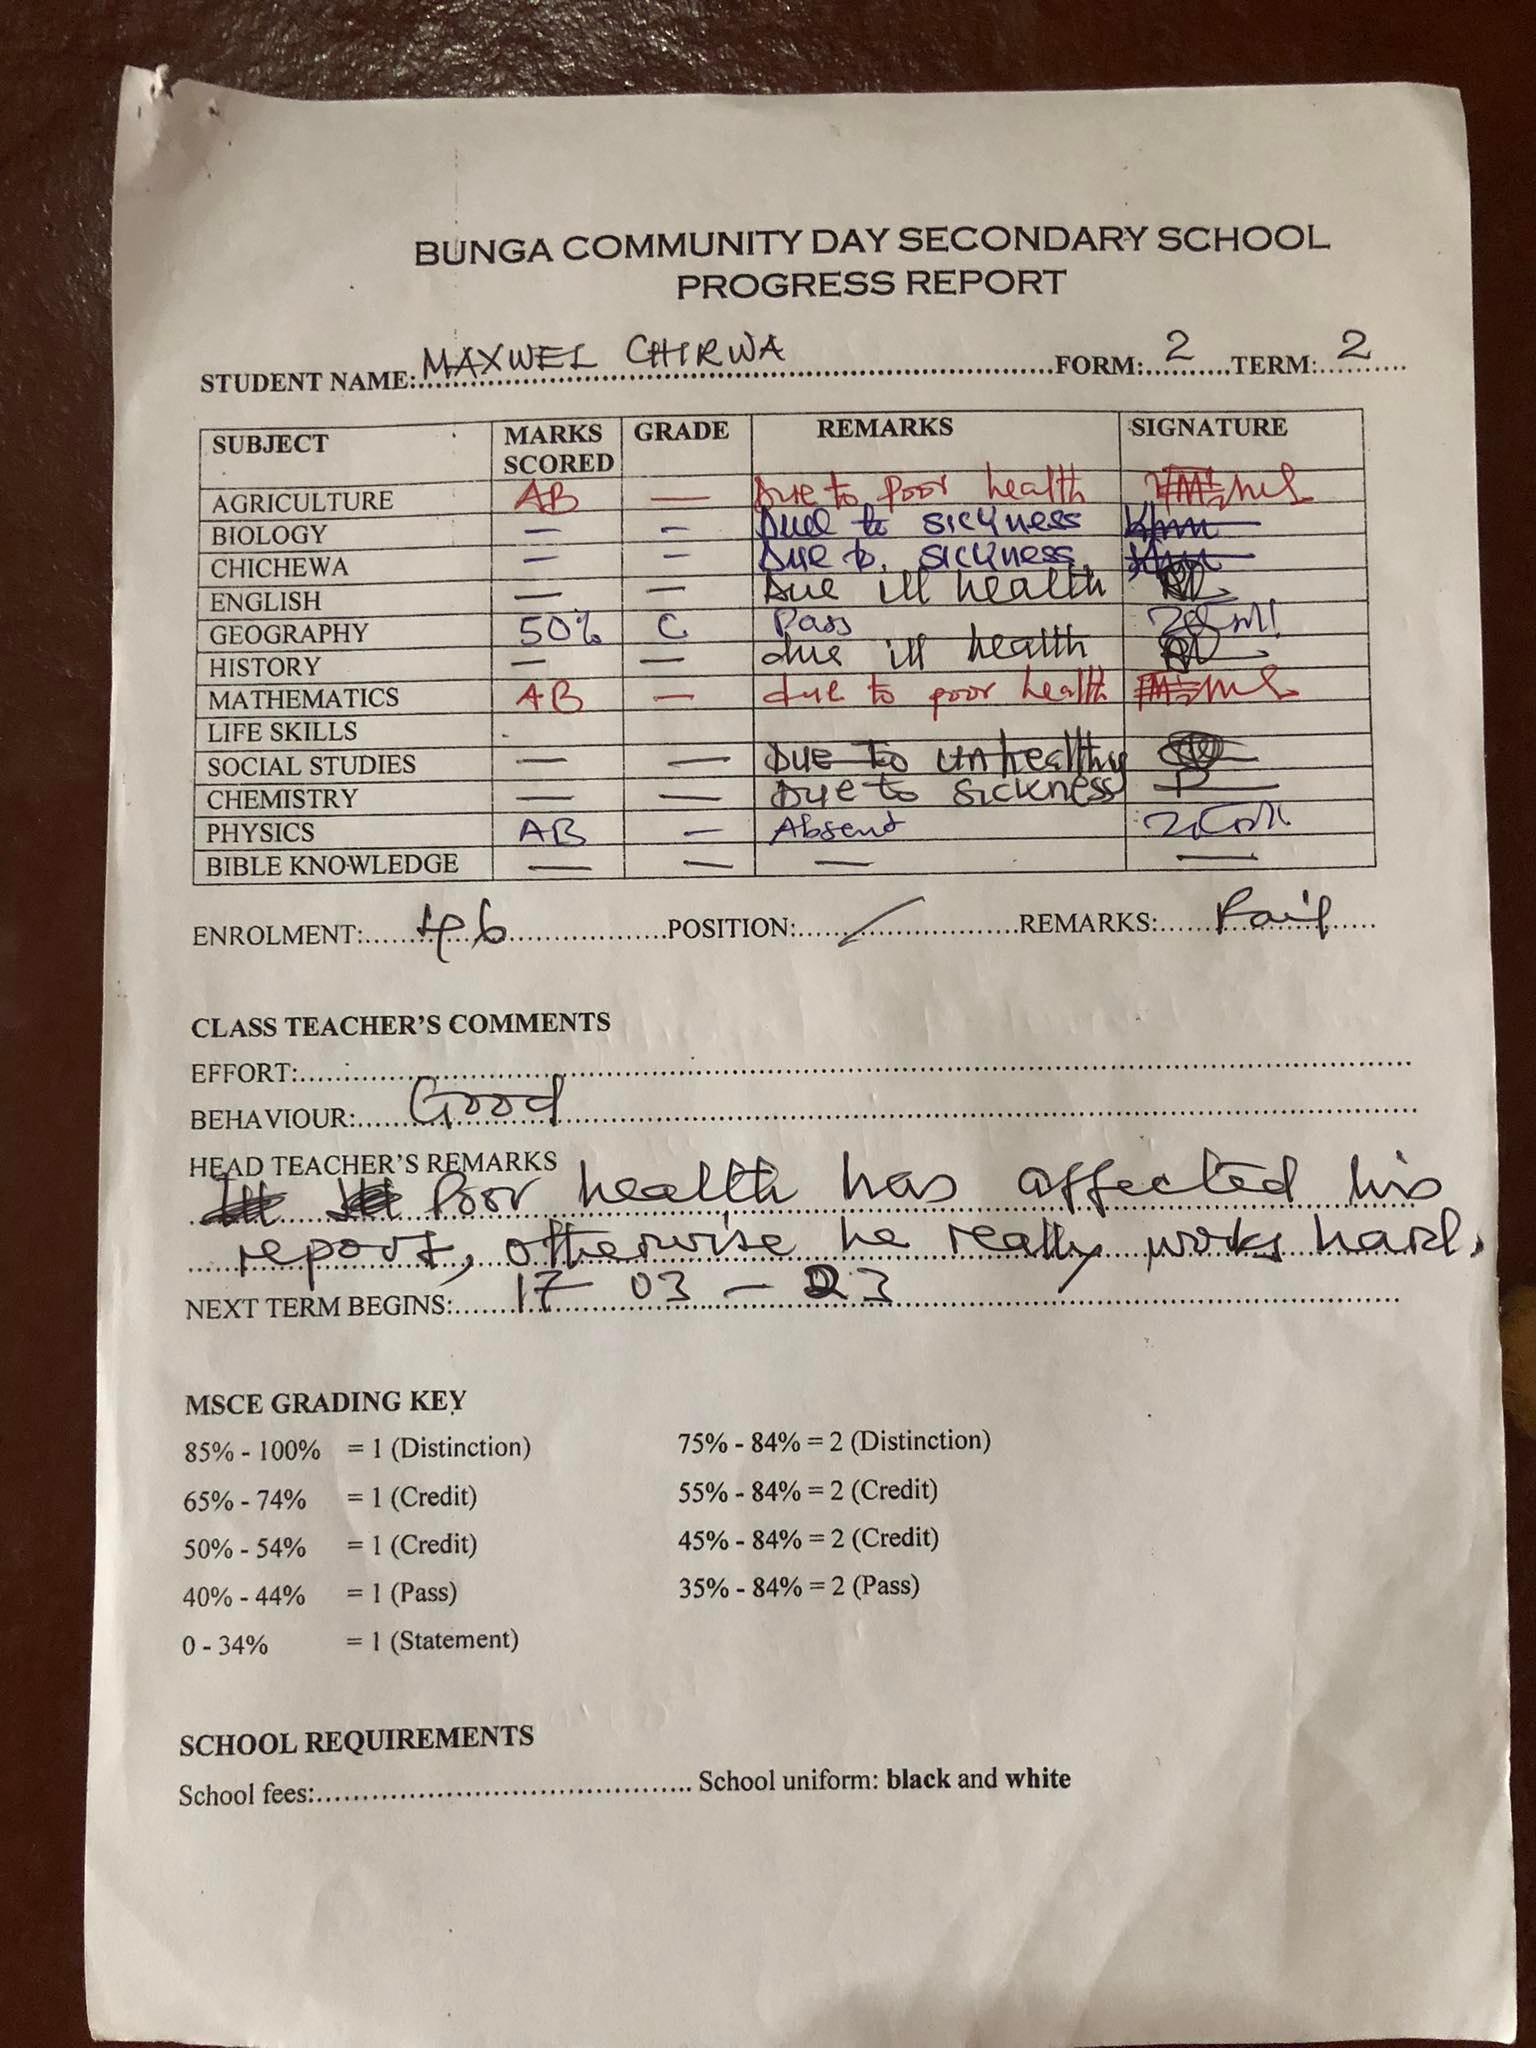 BUNGA COMMUNITY DAY SECONDARY SCHOOL
PROGRESS REPORT
STUDENT NAME: MAXWEL CHIRWA FORM: 2 TERM: 2
SUBJECT MARKS SCORED GRADE REMARKS SIGNATURE
AGRICULTURE AB — Due to poor health
BIOLOGY — — Due to sickness
CHICHEWA — — Due to sickness
ENGLISH — — Due ill health
GEOGRAPHY 50% C Pass
HISTORY — — due ill health
MATHEMATICS AB — due to poor health
LIFE SKILLS
SOCIAL STUDIES — — Due to unhealthy
CHEMISTRY — — Due to sickness
PHYSICS AB — Absent
BIBLE KNOWLEDGE — — — —
ENROLMENT: 46 POSITION: / REMARKS: Fail
CLASS TEACHER'S COMMENTS
EFFORT:
BEHAVIOUR: Good
HEAD TEACHER'S REMARKS
Poor health has affected his
report, otherwise he really works hard.
NEXT TERM BEGINS: 17 03 - 23
MSCE GRADING KEY
85% - 100% = 1 (Distinction) 75% - 84% = 2 (Distinction)
65% - 74% = 1 (Credit) 55% - 84% = 2 (Credit)
50% - 54% = 1 (Credit) 45% - 84% = 2 (Credit)
40% - 44% = 1 (Pass) 35% - 84% = 2 (Pass)
0 - 34% = 1 (Statement)
SCHOOL REQUIREMENTS
School fees: School uniform: black and white